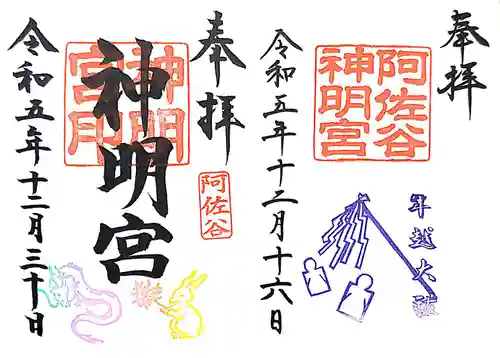 奉拝
阿佐谷
神明宮
神明宮印
令和五年十二月三十日
奉拝
阿佐谷神明宮
年越大祓
令和五年十二月十六日